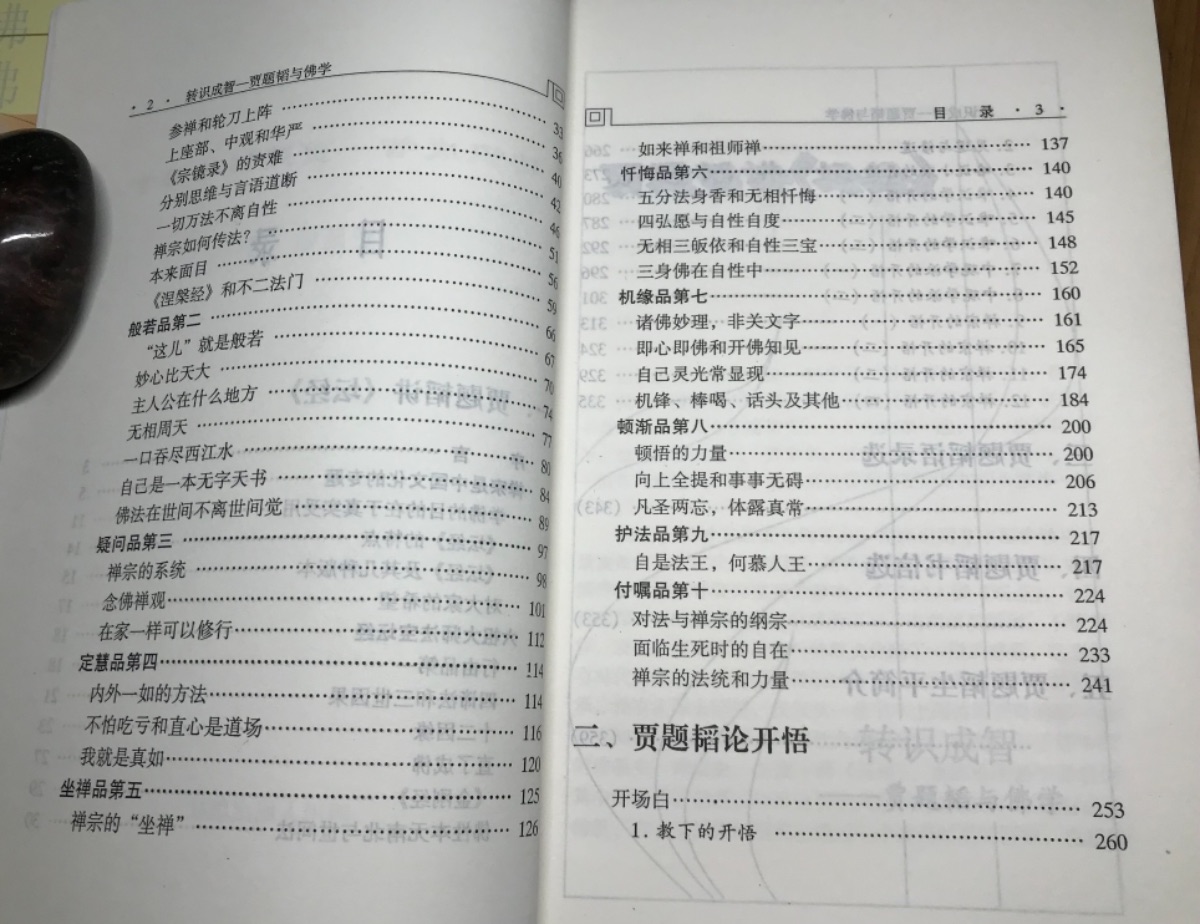 · 2 · 转识成智—贾题韬与佛学
参禅和轮刀上阵 33
上座部、中观和华严 36
《宗镜录》的责难 40
分别思维与言语道断 42
一切万法不离自性 46
禅宗如何传法？ 51
本来面目 56
《涅槃经》和不二法门 59
般若品第二 66
“这儿”就是般若 67
妙心比天大 70
主人公在什么地方 74
无相周天 77
一口吞尽西江水 80
自己是一本无字天书 84
佛法在世间不离世间觉 89
疑问品第三 97
禅宗的系统 98
念佛禅观 101
在家一样可以修行 112
定慧品第四 114
内外一如的方法 114
不怕吃亏和直心是道场 116
我就是真如 120
坐禅品第五 125
禅宗的“坐禅” 126
目 录 · 3 ·
如来禅和祖师禅 137
忏悔品第六 140
五分法身香和无相忏悔 140
四弘愿与自性自度 145
无相三皈依和自性三宝 148
三身佛在自性中 152
机缘品第七 160
诸佛妙理，非关文字 161
即心即佛和开佛知见 165
自己灵光常显现 174
机锋、棒喝、话头及其他 184
顿渐品第八 200
顿悟的力量 200
向上全提和事事无碍 206
凡圣两忘，体露真常 213
护法品第九 217
自是法王，何慕人王 217
付嘱品第十 224
对法与禅宗的纲宗 224
面临生死时的自在 233
禅宗的法统和力量 241
二、贾题韬论开悟
开场白 253
1. 教下的开悟 260